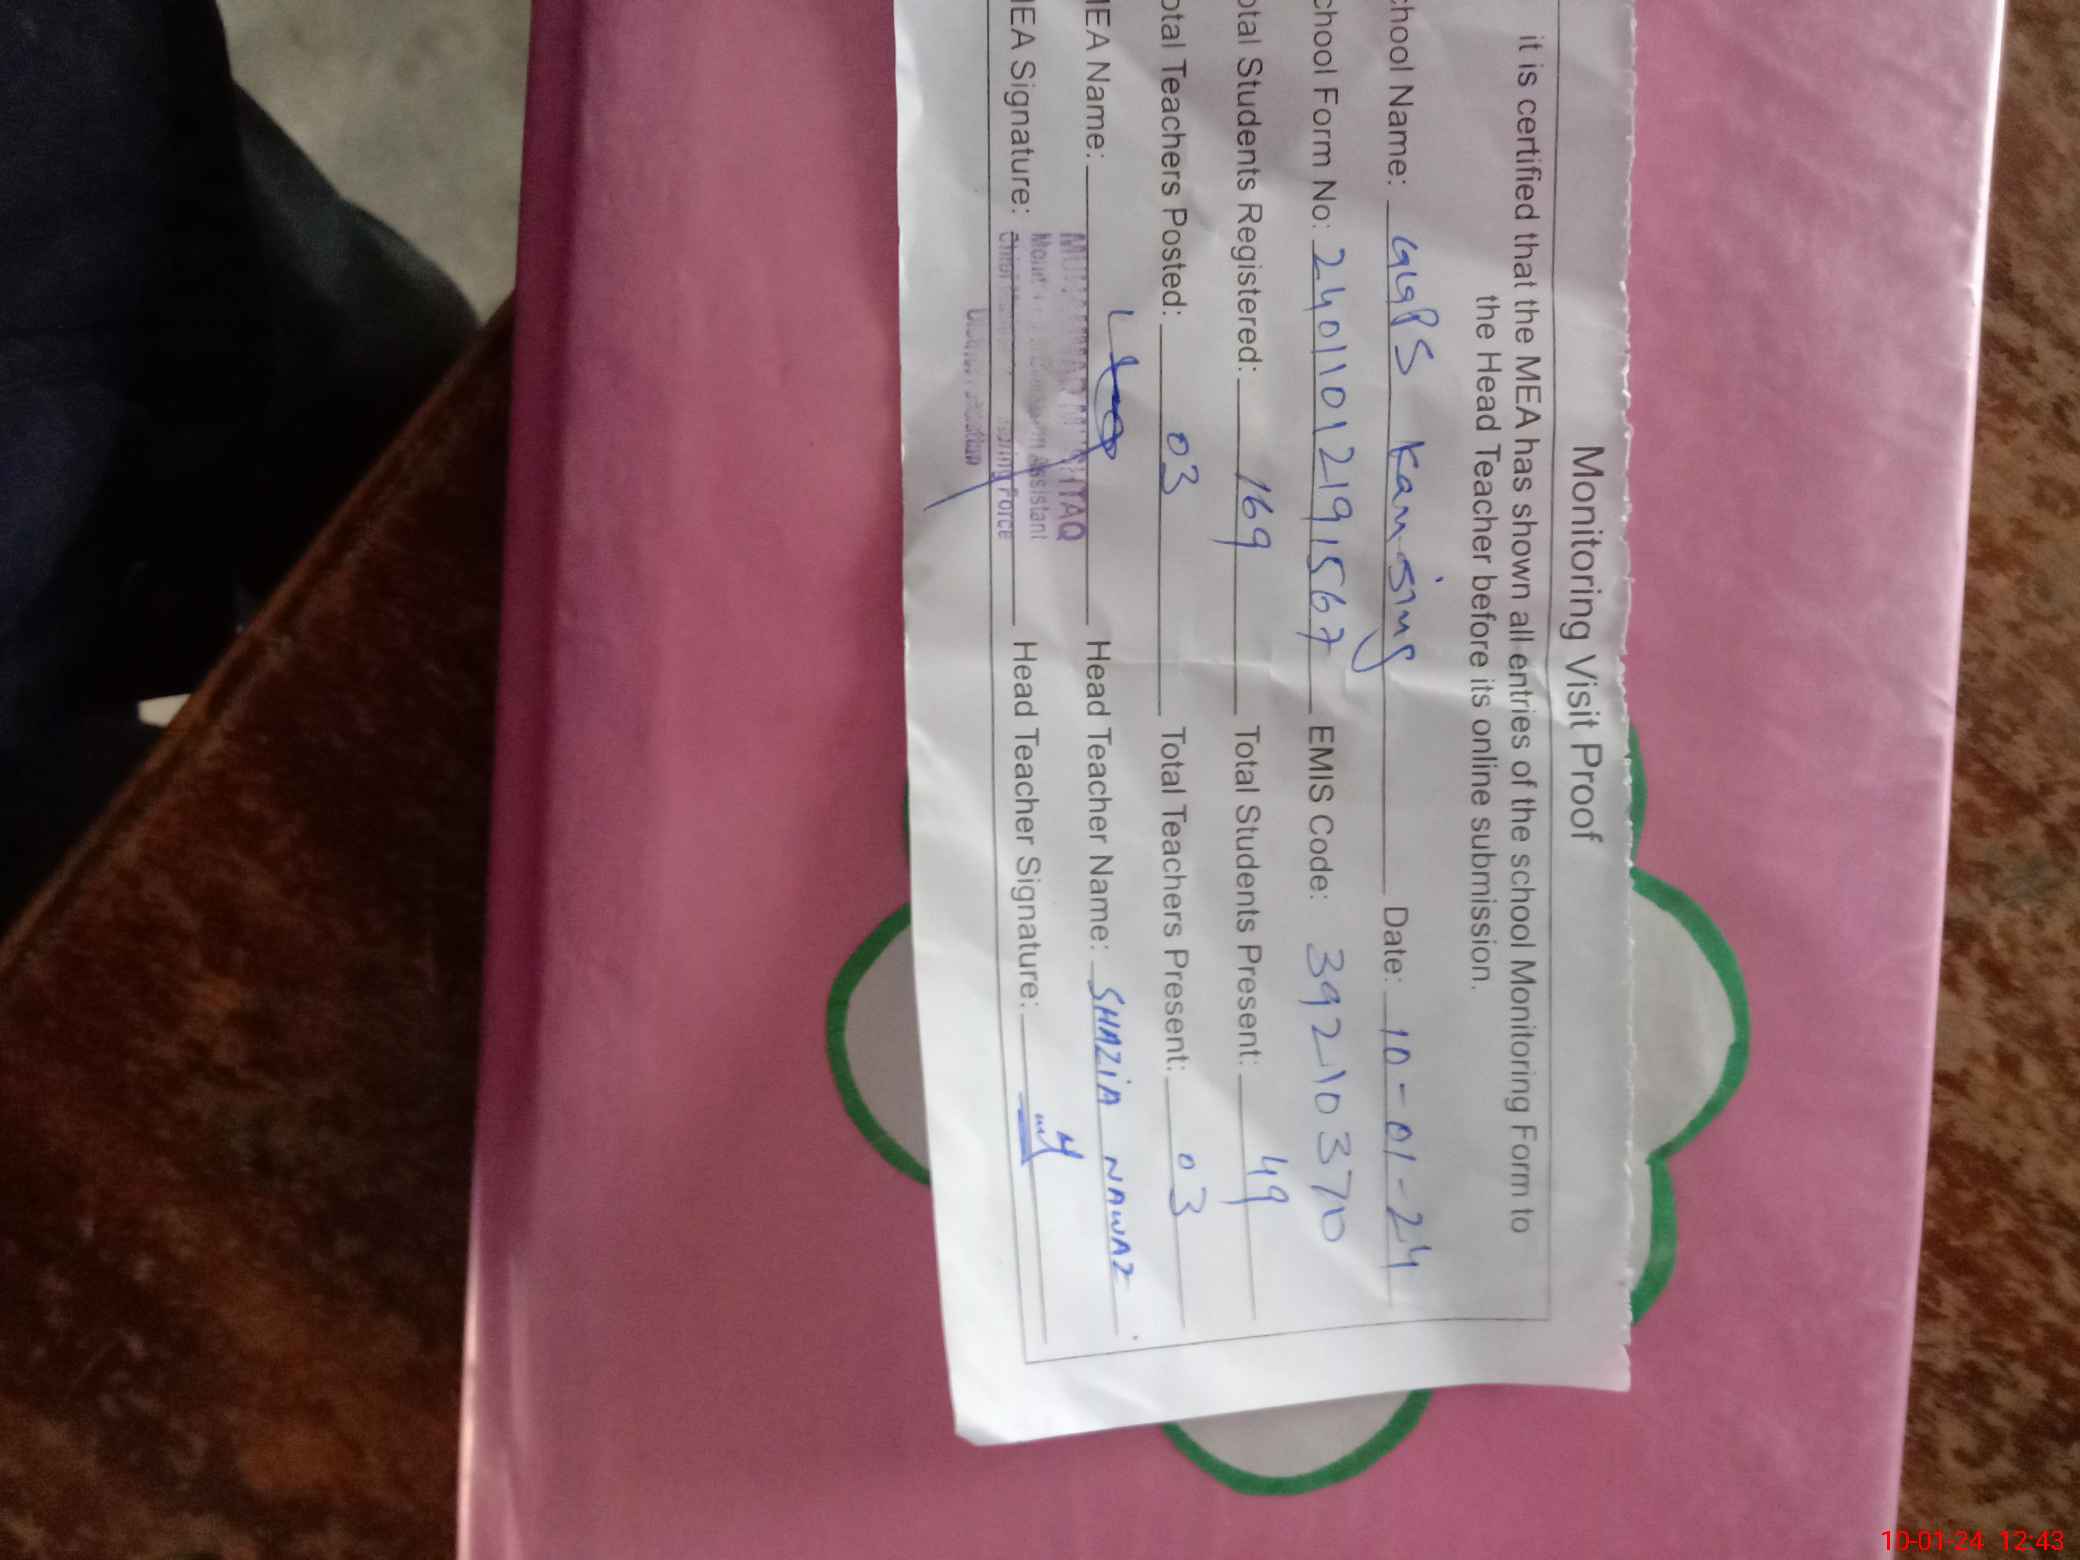 Monitoring Visit Proof
it is certified that the MEA has shown all entries of the school Monitoring Form to
the Head Teacher before its online submission.
chool Name: GGPS Kamsing Date: 10-01-24
chool Form No: 24011012191567 EMIS Code: 39210370
otal Students Registered: 169 Total Students Present: 49
otal Teachers Posted: 03 Total Teachers Present: 03
MEA Name: Head Teacher Name: SHAZIA NAWAZ
MEA Signature: Head Teacher Signature:
Assistant
Force
10-01-24 12:43